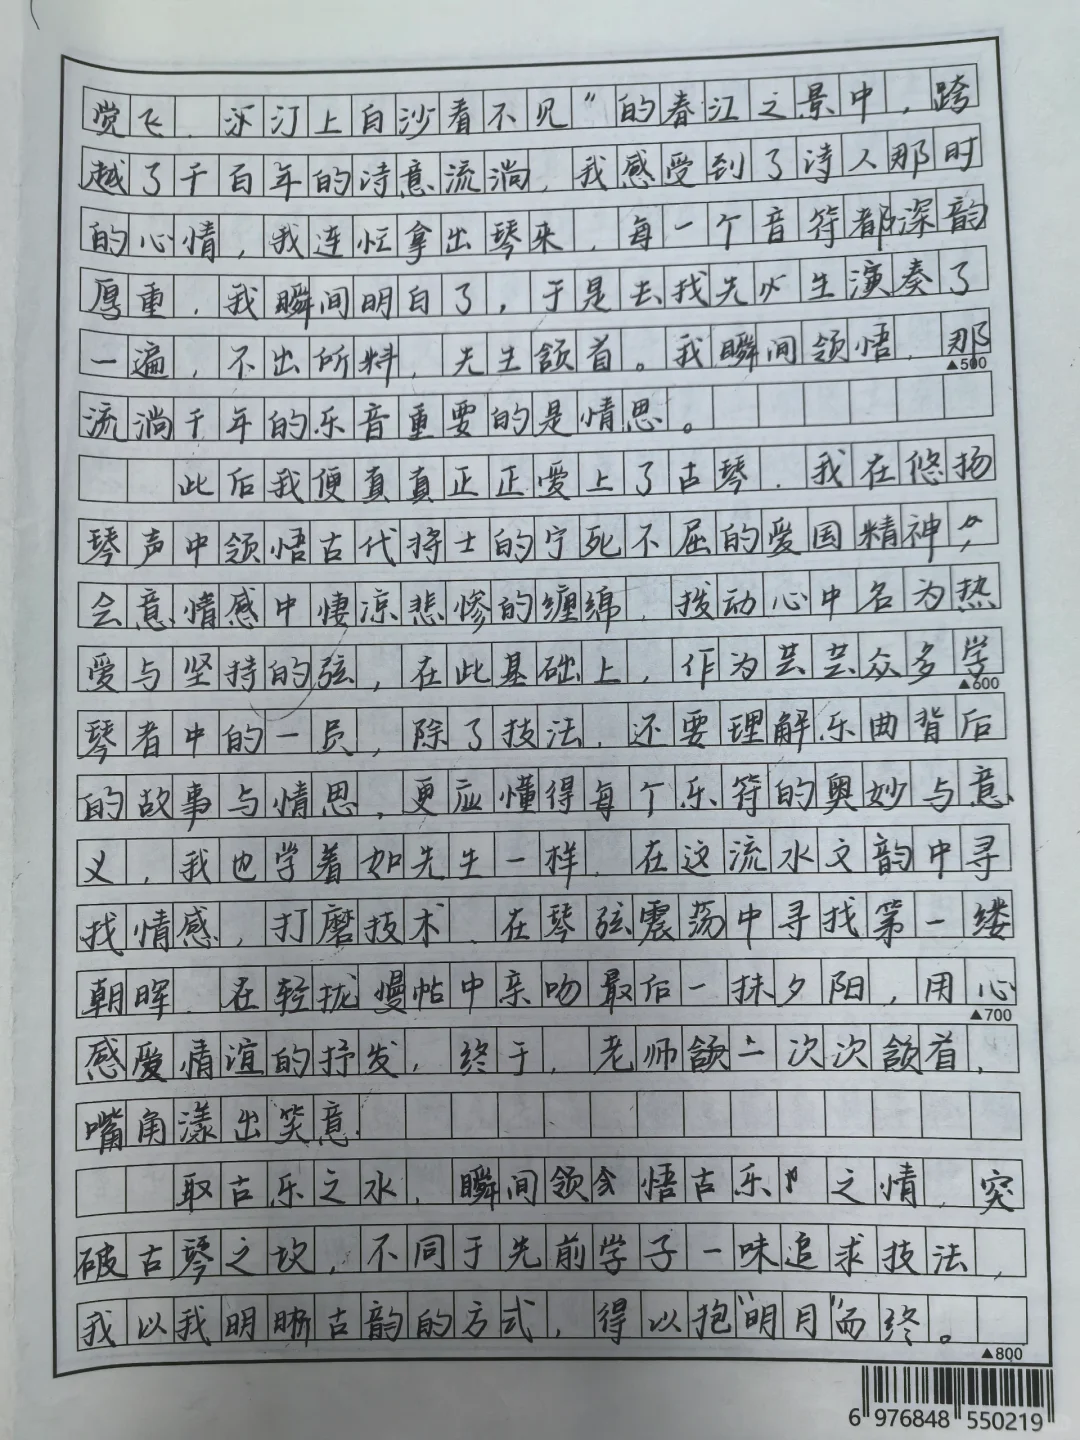 觉飞，汀上白沙看不见”的春江之景中，跨
越了千百年的诗意流淌，我感受到了诗人那时
的心情，我连忙拿出琴来，每一个音符都深韵
厚重，我瞬间明白了，于是去找先生演奏了
一遍，不出所料，先生颔首。我瞬间领悟，那
▲500
流淌千年的乐音重要的是情思。
此后我便真真正正爱上了古琴，我在悠扬
琴声中领悟古代将士的宁死不屈的爱国精神，
会意情感中悽凉悲惨的缠绵，拨动心中名为热
爱与坚持的弦，在此基础上，作为芸芸众多学
▲600
琴者中的一员，除了技法，还要理解乐曲背后
的故事与情思，更应懂得每个乐符的奥妙与意
义，我也学着如先生一样，在这流水文韵中寻
找情感，打磨技术，在琴弦震荡中寻找第一缕
朝晖，在轻拢慢帖中亲吻最后一抹夕阳，用心
▲700
感爱情谊的抒发，终于，老师颔一次次颔首，
嘴角漾出笑意.
取古乐之水，瞬间领悟古乐之情，突
破古琴之坎，不同于先前学子一味追求技法，
我以我明晰古韵的方式，得以抱“明月”而终。
▲800
6 976848 550219